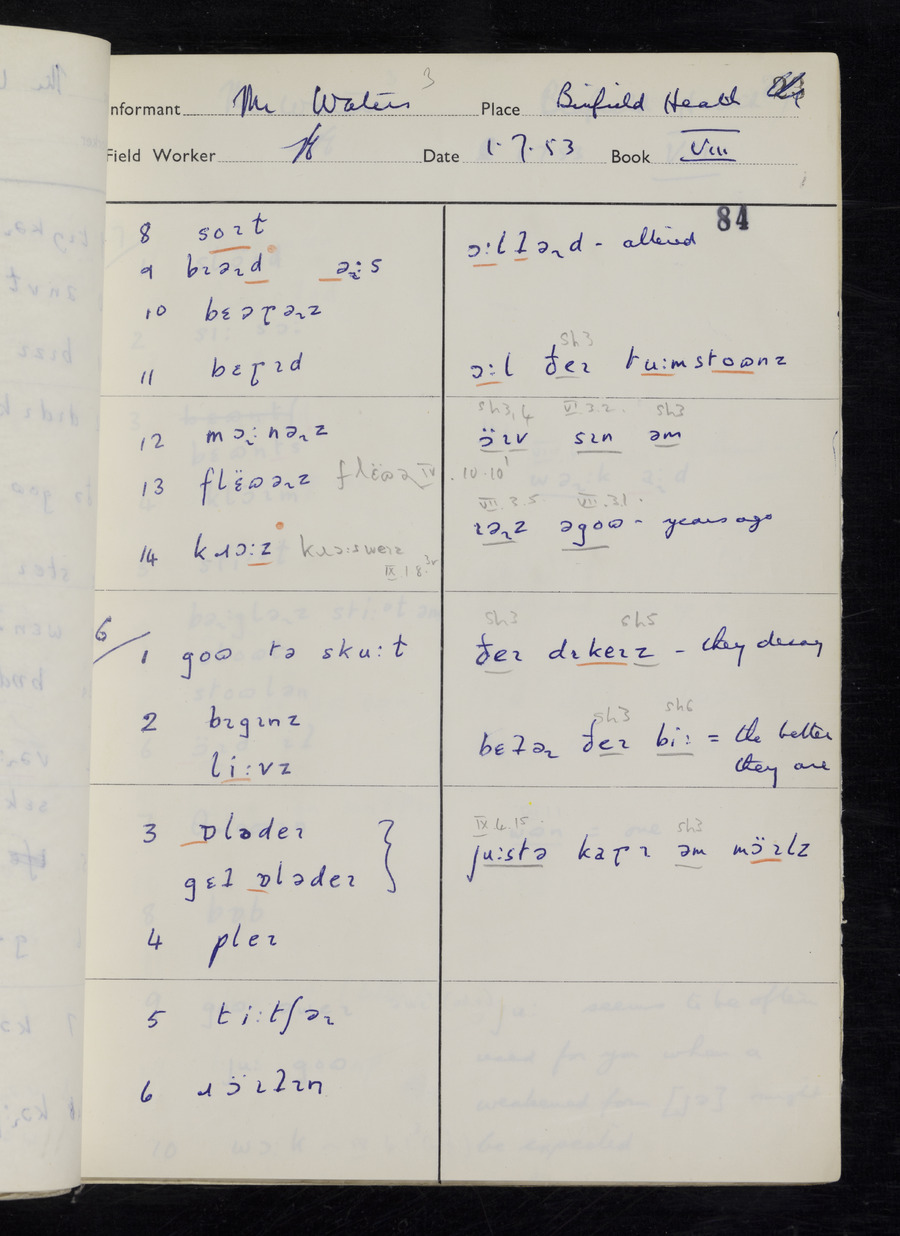 3
Informant Mr Waters Place Binfield Heath
Field Worker Date 1.7.53 Book VIII
84
8 sɔɪt
9 bɪəɹd əːs
ɔːlʔəɹd - altered
10 bɛəɽəɹz
11 bɛɽɪd
sh3
ɔːl ðeɪ tuːmstoʊnz
12 məːnəɹz
sh3,4 VI.3.2. sh3
ӧɪv sɪn əm
13 flɛ̈ʊəɹz flɛ̈ʊə IV.10.10
VII.3.5 VII.3.1.
ɪəɹz əgoʊ - years ago
14 kɹɔːz kɹɔːsweɪz
IX.1.8.
6
1 goʊ tə skuːt
sh3 sh5
ðeɪ dɪkeɪz - they decay
2 bɪgɪnz
liːvz
sh3 sh6
bɛʔəɹ ðeɪ biː = the better
they are
3 ɒlədeɪ
gɛʔ ɒlədeɪ
IX.4.15. sh3
juːstə kaɽɪ əm mӧɪlz
4 pleɪ
5 tiːtʃəɹ
6 ɹӧɪʔɪn